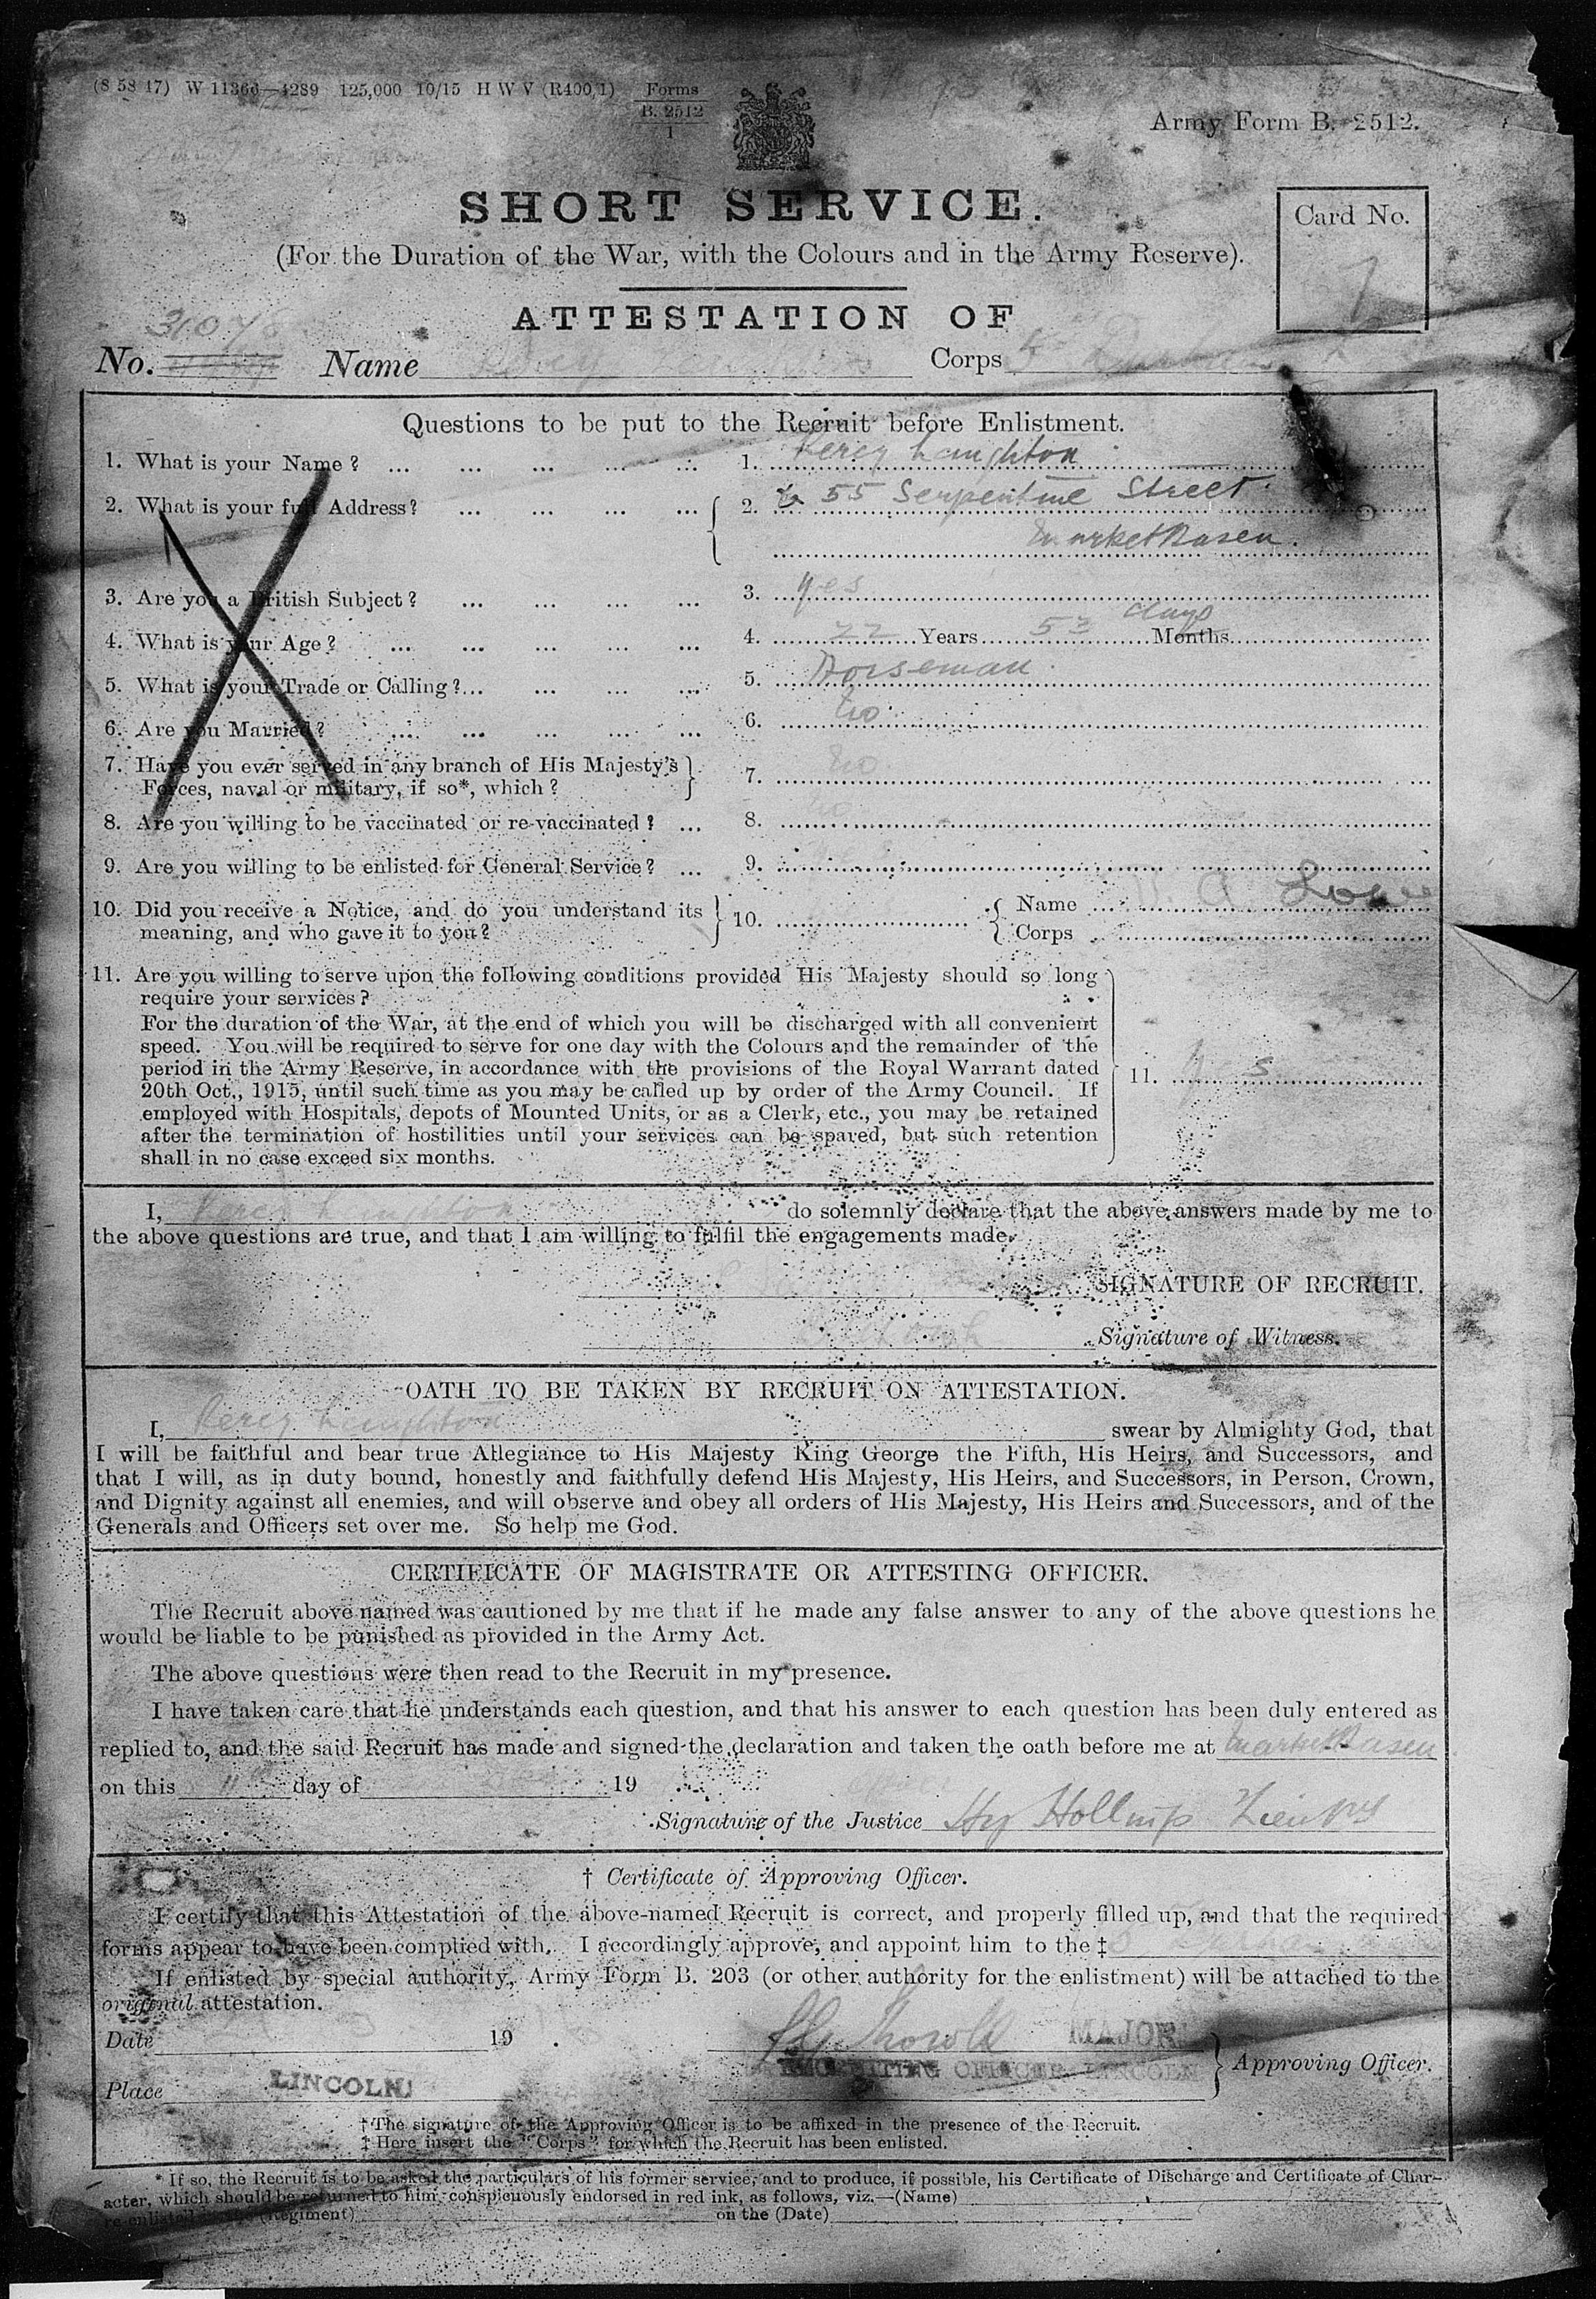 (8 58 17) W 11366—4289 125,000 10/15 H W V (R400/1) Forms
B. 2512
1
Army Form B. 2512.
SHORT SERVICE.
Card No.
(For the Duration of the War, with the Colours and in the Army Reserve).
ATTESTATION OF
31078
No. Name Percy Corps
Questions to be put to the Recruit before Enlistment.
1. What is your Name? ... 1. Percy Laughton
2. What is your full Address? ... 2. 55 Serpentine Street
Market Rasen.
3. Are you a British Subject? ... 3. Yes
4. What is your Age? ... 4. 22 Years 53 Months days
5. What is your Trade or Calling?... 5. Horseman.
6. Are you Married? ... 6. No
7. Have you ever served in any branch of His Majesty's 7. No
Forces, naval or military, if so*, which?
8. Are you willing to be vaccinated or re-vaccinated? ... 8.
9. Are you willing to be enlisted for General Service? ... 9.
10. Did you receive a Notice, and do you understand its 10. Name
meaning, and who gave it to you? Corps
11. Are you willing to serve upon the following conditions provided His Majesty should so long
require your services?
For the duration of the War, at the end of which you will be discharged with all convenient
speed. You will be required to serve for one day with the Colours and the remainder of the
period in the Army Reserve, in accordance with the provisions of the Royal Warrant dated 11.
20th Oct., 1915, until such time as you may be called up by order of the Army Council. If
employed with Hospitals, depots of Mounted Units, or as a Clerk, etc., you may be retained
after the termination of hostilities until your services can be spared, but such retention
shall in no case exceed six months.
I, Percy Laughton do solemnly declare that the above answers made by me to
the above questions are true, and that I am willing to fulfil the engagements made.
SIGNATURE OF RECRUIT.
Signature of Witness.
OATH TO BE TAKEN BY RECRUIT ON ATTESTATION.
I, Percy Laughton swear by Almighty God, that
I will be faithful and bear true Allegiance to His Majesty King George the Fifth, His Heirs, and Successors, and
that I will, as in duty bound, honestly and faithfully defend His Majesty, His Heirs, and Successors, in Person, Crown,
and Dignity against all enemies, and will observe and obey all orders of His Majesty, His Heirs and Successors, and of the
Generals and Officers set over me. So help me God.
CERTIFICATE OF MAGISTRATE OR ATTESTING OFFICER.
The Recruit above named was cautioned by me that if he made any false answer to any of the above questions he
would be liable to be punished as provided in the Army Act.
The above questions were then read to the Recruit in my presence.
I have taken care that he understands each question, and that his answer to each question has been duly entered as
replied to, and the said Recruit has made and signed the declaration and taken the oath before me at Market Rasen
on this 11th day of 19
Signature of the Justice
† Certificate of Approving Officer.
I certify that this Attestation of the above-named Recruit is correct, and properly filled up, and that the required
forms appear to have been complied with. I accordingly approve, and appoint him to the ‡
If enlisted by special authority, Army Form B. 203 (or other authority for the enlistment) will be attached to the
original attestation.
Date 19 MAJOR
RECRUITING OFFICER LINCOLN Approving Officer.
Place LINCOLN
† The signature of the Approving Officer is to be affixed in the presence of the Recruit.
‡ Here insert the "Corps" for which the Recruit has been enlisted.
* If so, the Recruit is to be asked the particulars of his former service, and to produce, if possible, his Certificate of Discharge and Certificate of Char-
acter, which should be returned to him, conspicuously endorsed in red ink, as follows, viz.—(Name)
re-enlisted in the (Regiment) on the (Date)